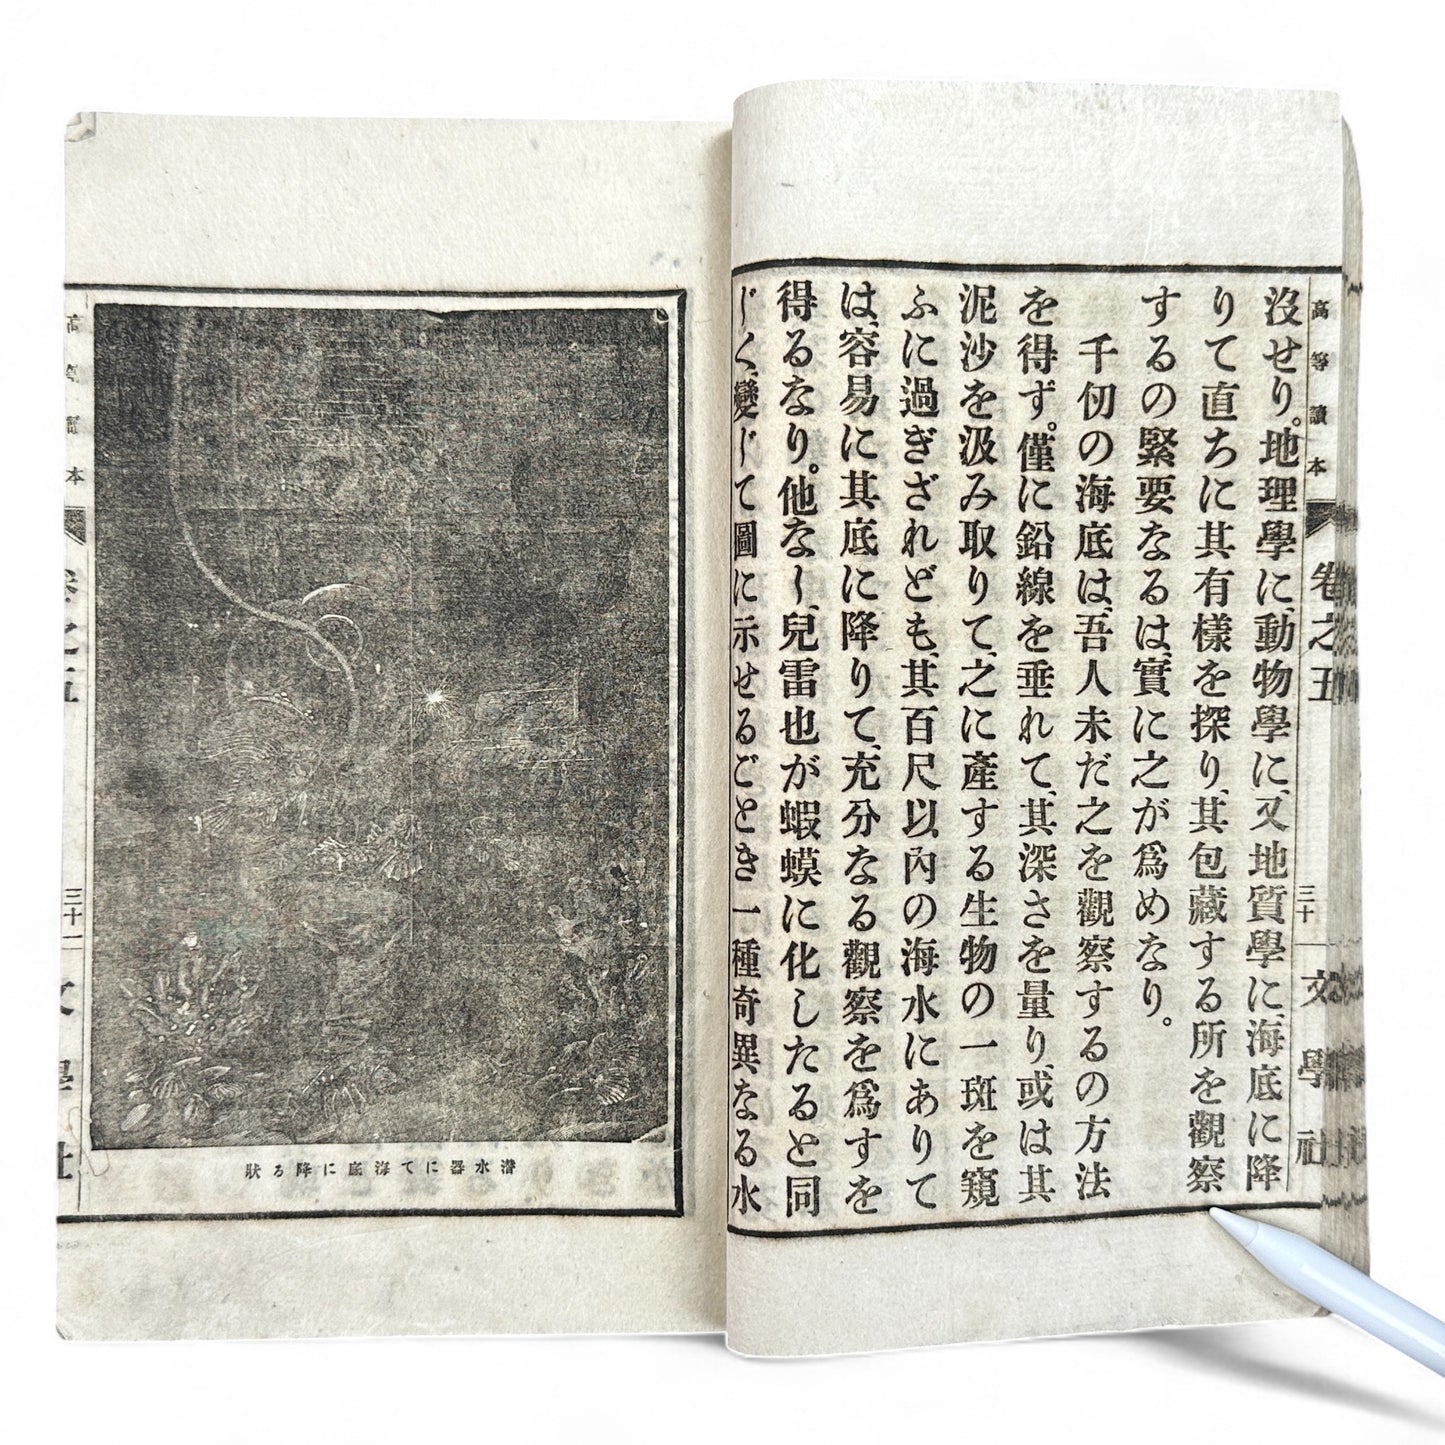 高等讀本
卷之五
三十
文學社
沒せり。地理學に、動物學に、又地質學に、海底に降
りて直ちに其有樣を探り、其包藏する所を觀察
するの緊要なるは、實に之が爲めなり。
千仞の海底は、吾人未だ之を觀察するの方法
を得ず。僅に鉛線を垂れて、其深さを量り、或は其
泥沙を汲み取りて、之に產する生物の一斑を窺
ふに過ぎざれども、其百尺以內の海水にありて
は、容易に其底に降りて、充分なる觀察を爲すを
得るなり。他なし、兒雷也が蝦蟆に化したると同
じく、變じて圖に示せるごとき一種奇異なる水
高等讀本
卷之五
三十一
文學社
潛水器にて海底に降る狀